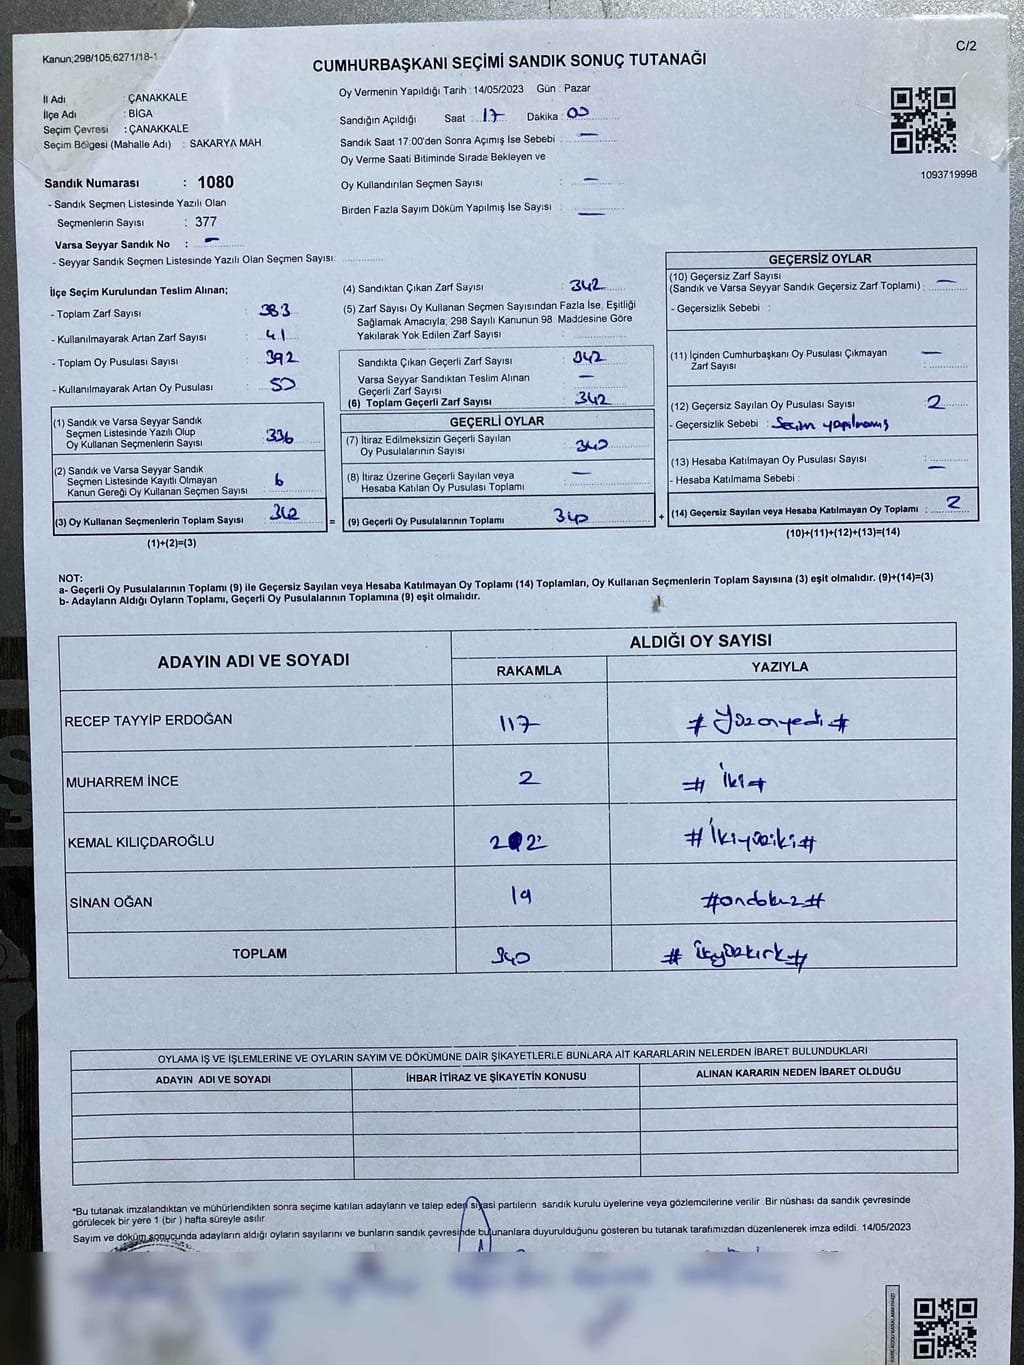 Kanun;298/105;6271/18-1
C/2
CUMHURBAŞKANI SEÇİMİ SANDIK SONUÇ TUTANAĞI
İl Adı : ÇANAKKALE
İlçe Adı : BİGA
Seçim Çevresi : ÇANAKKALE
Seçim Bölgesi (Mahalle Adı) : SAKARYA MAH.
Oy Vermenin Yapıldığı Tarih : 14/05/2023 Gün : Pazar
Sandığın Açıldığı Saat : 17 Dakika : 00
Sandık Saat 17:00'den Sonra Açımış İse Sebebi : —
Oy Verme Saati Bitiminde Sırada Bekleyen ve
Oy Kullandırılan Seçmen Sayısı : —
Birden Fazla Sayım Döküm Yapılmış İse Sayısı : —
1093719998
Sandık Numarası : 1080
- Sandık Seçmen Listesinde Yazılı Olan
Seçmenlerin Sayısı : 377
Varsa Seyyar Sandık No : —
- Seyyar Sandık Seçmen Listesinde Yazılı Olan Seçmen Sayısı:
İlçe Seçim Kurulundan Teslim Alınan;
- Toplam Zarf Sayısı : 383
- Kullanılmayarak Artan Zarf Sayısı : 41
- Toplam Oy Pusulası Sayısı : 392
- Kullanılmayarak Artan Oy Pusulası : 50
(1) Sandık ve Varsa Seyyar Sandık
Seçmen Listesinde Yazılı Olup
Oy Kullanan Seçmenlerin Sayısı : 336
(2) Sandık ve Varsa Seyyar Sandık
Seçmen Listesinde Kayıtlı Olmayan
Kanun Gereği Oy Kullanan Seçmen Sayısı : 6
(3) Oy Kullanan Seçmenlerin Toplam Sayısı : 342 =
(1)+(2)=(3)
(4) Sandıktan Çıkan Zarf Sayısı : 342
(5) Zarf Sayısı Oy Kullanan Seçmen Sayısından Fazla İse, Eşitliği
Sağlamak Amacıyla; 298 Sayılı Kanunun 98. Maddesine Göre
Yakılarak Yok Edilen Zarf Sayısı :
Sandıkta Çıkan Geçerli Zarf Sayısı : 342
Varsa Seyyar Sandıktan Teslim Alınan
Geçerli Zarf Sayısı : —
(6) Toplam Geçerli Zarf Sayısı : 342
GEÇERLİ OYLAR
(7) İtiraz Edilmeksizin Geçerli Sayılan
Oy Pusulalarının Sayısı : 340
(8) İtiraz Üzerine Geçerli Sayılan veya
Hesaba Katılan Oy Pusulası Toplamı : —
(9) Geçerli Oy Pusulalarının Toplamı : 340 +
GEÇERSİZ OYLAR
(10) Geçersiz Zarf Sayısı
(Sandık ve Varsa Seyyar Sandık Geçersiz Zarf Toplamı) : —
- Geçersizlik Sebebi :
(11) İçinden Cumhurbaşkanı Oy Pusulası Çıkmayan
Zarf Sayısı : —
(12) Geçersiz Sayılan Oy Pusulası Sayısı : 2
- Geçersizlik Sebebi : Seçim yapılmamış
(13) Hesaba Katılmayan Oy Pusulası Sayısı : —
- Hesaba Katılmama Sebebi :
(14) Geçersiz Sayılan veya Hesaba Katılmayan Oy Toplamı : 2
(10)+(11)+(12)+(13)=(14)
NOT:
a- Geçerli Oy Pusulalarının Toplamı (9) ile Geçersiz Sayılan veya Hesaba Katılmayan Oy Toplamı (14) Toplamları, Oy Kullanan Seçmenlerin Toplam Sayısına (3) eşit olmalıdır. (9)+(14)=(3)
b- Adayların Aldığı Oyların Toplamı, Geçerli Oy Pusulalarının Toplamına (9) eşit olmalıdır.
ADAYIN ADI VE SOYADI ALDIĞI OY SAYISI
RAKAMLA YAZIYLA
RECEP TAYYİP ERDOĞAN 117 # Yüzonyedi #
MUHARREM İNCE 2 # İki #
KEMAL KILIÇDAROĞLU 202 # İkiyüziki #
SİNAN OĞAN 19 # ondokuz #
TOPLAM 340 # üçyüzkırk #
OYLAMA İŞ VE İŞLEMLERİNE VE OYLARIN SAYIM VE DÖKÜMÜNE DAİR ŞİKAYETLERLE BUNLARA AİT KARARLARIN NELERDEN İBARET BULUNDUKLARI
ADAYIN ADI VE SOYADI İHBAR İTİRAZ VE ŞİKAYETİN KONUSU ALINAN KARARIN NEDEN İBARET OLDUĞU
*Bu tutanak imzalandıktan ve mühürlendikten sonra seçime katılan adayların ve talep eden siyasi partilerin sandık kurulu üyelerine veya gözlemcilerine verilir. Bir nüshası da sandık çevresinde
görülecek bir yere 1 (bir ) hafta süreyle asılır.
Sayım ve döküm sonucunda adayların aldığı oyların sayılarını ve bunların sandık çevresinde bulunanlara duyurulduğunu gösteren bu tutanak tarafımızdan düzenlenerek imza edildi. 14/05/2023